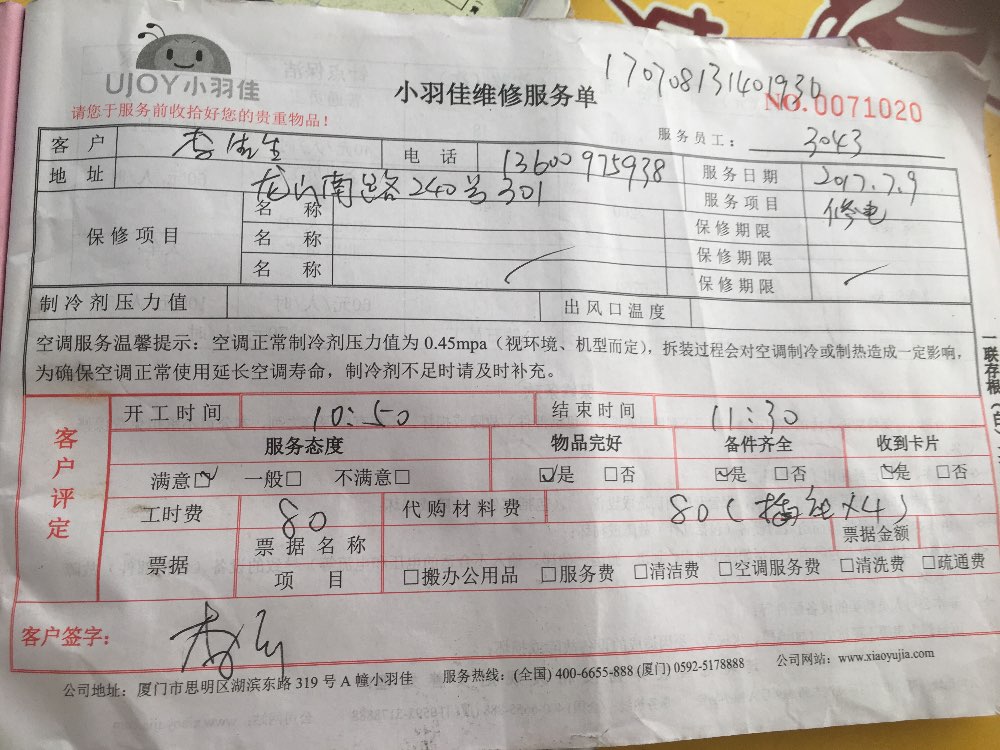 UJOY小羽佳
小羽佳维修服务单
170708131401930
NO.0071020
请您于服务前收拾好您的贵重物品!
服务员工: 3043
客户 李先生 电话 13600975938 服务日期 2017.7.9
地址 龙山南路240号301 服务项目 修电
保修项目 名称 保修期限
名称 保修期限
名称 保修期限
制冷剂压力值 出风口温度
空调服务温馨提示:空调正常制冷剂压力值为 0.45mpa(视环境、机型而定),拆装过程会对空调制冷或制热造成一定影响,
为确保空调正常使用延长空调寿命,制冷剂不足时请及时补充。
一联存根
客户评定
开工时间 10:50 结束时间 11:30
服务态度 物品完好 备件齐全 收到卡片
满意☑ 一般□ 不满意□ ☑是 □否 ☑是 □否 ☑是 □否
工时费 80 代购材料费 80(插座×4)
票据 票据名称 票据金额
项目 □搬办公用品 □服务费 □清洁费 □空调服务费 □清洗费 □疏通费
客户签字: 李
公司地址:厦门市思明区湖滨东路 319 号 A 幢小羽佳 服务热线:(全国) 400-6655-888 (厦门) 0592-5178888 公司网站:www.xiaoyujia.com